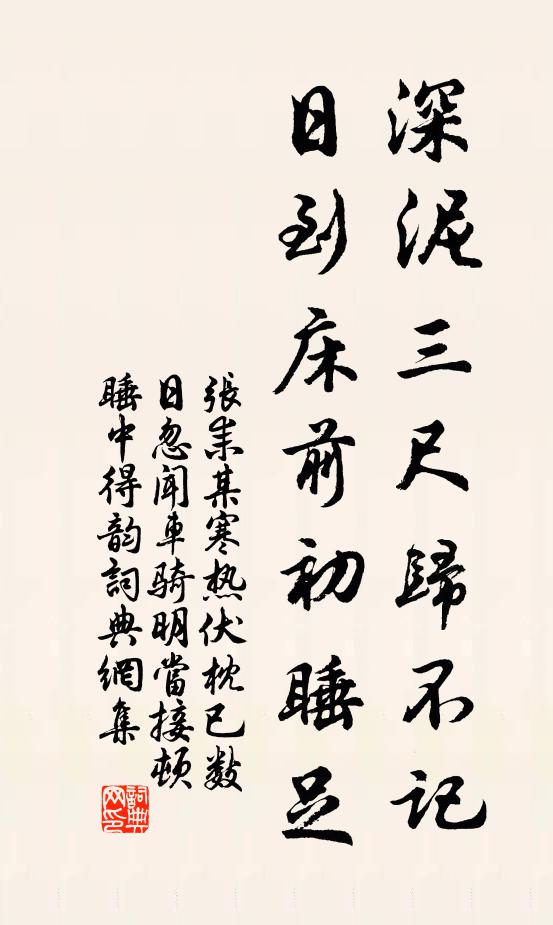 深泥三尺歸不記
日到床前初睡足
張耒某寒熱伏枕已數
日忽聞車騎明當接頓
睡中得韵詞典網集
詞典
网印